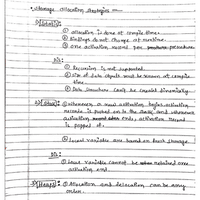 Storage allocation strategies :—
1) Static: ① allocation is done at compile time.
② Bindings do not change at runtime.
③ one activation record per procedure
Dis:
① Recursion is not supported.
② size of data objects must be known at compile
time.
③ Data structure can't be created dinamically
2) Stack: ① whenever a new activation begins activation
records is pushed onto the stack and whenever
activation ends, activation record
is popped off.
② Local variables are bound on fresh storage.
Dis:
① Local variable cannot be retained once
activation end.
3) Heap: ① Allocation and delocation can be any
order.